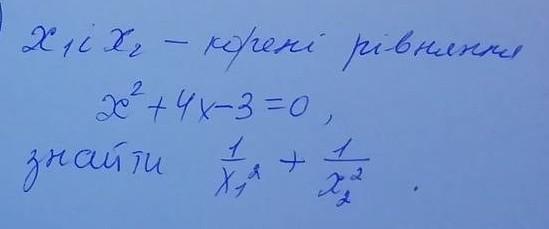 x₁ і x₂ – корені рівняння
x² + 4x – 3 = 0,
знайти 1/x₁² + 1/x₂² .